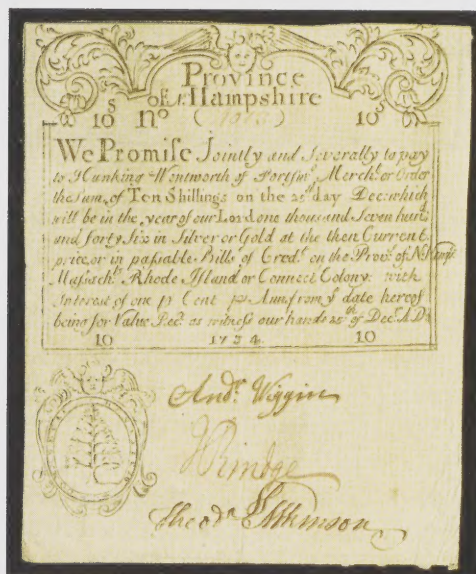 Province
of N. Hampshire
10 s No ( ) 10 s
We Promise Jointly and Severally to pay
to Hunking Wentworth of Portsmo. Mercht. or Order
the Sum of Ten Shillings on the 25th day Decr. which
will be in the year of our Lord one thousand Seven hund
and forty Six in Silver or Gold at the then Current
price, or in passable Bills of Credt. on the Provce. of N Hamps.
Massachts. Rhode Island or Connect Colony: with
Interest of one pr Cent pr Ann. from ye date hereof
being for Value Recd. as witness our hands 25th of Decr. A.D:
10 1734. 10
Andr. Wiggin
J Rindge
Theodr. Atkinson